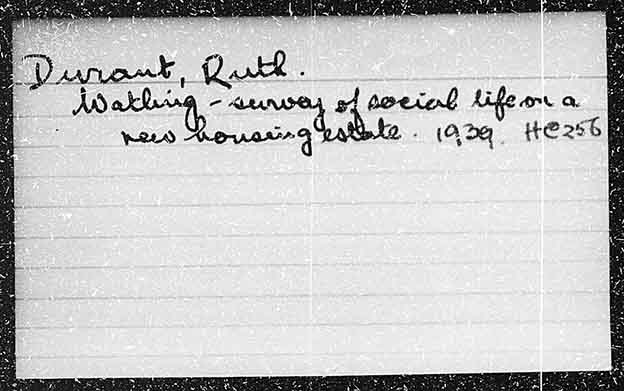 Durant, Ruth.
Watling - survey of social life on a
new housing estate. 1939. HC256